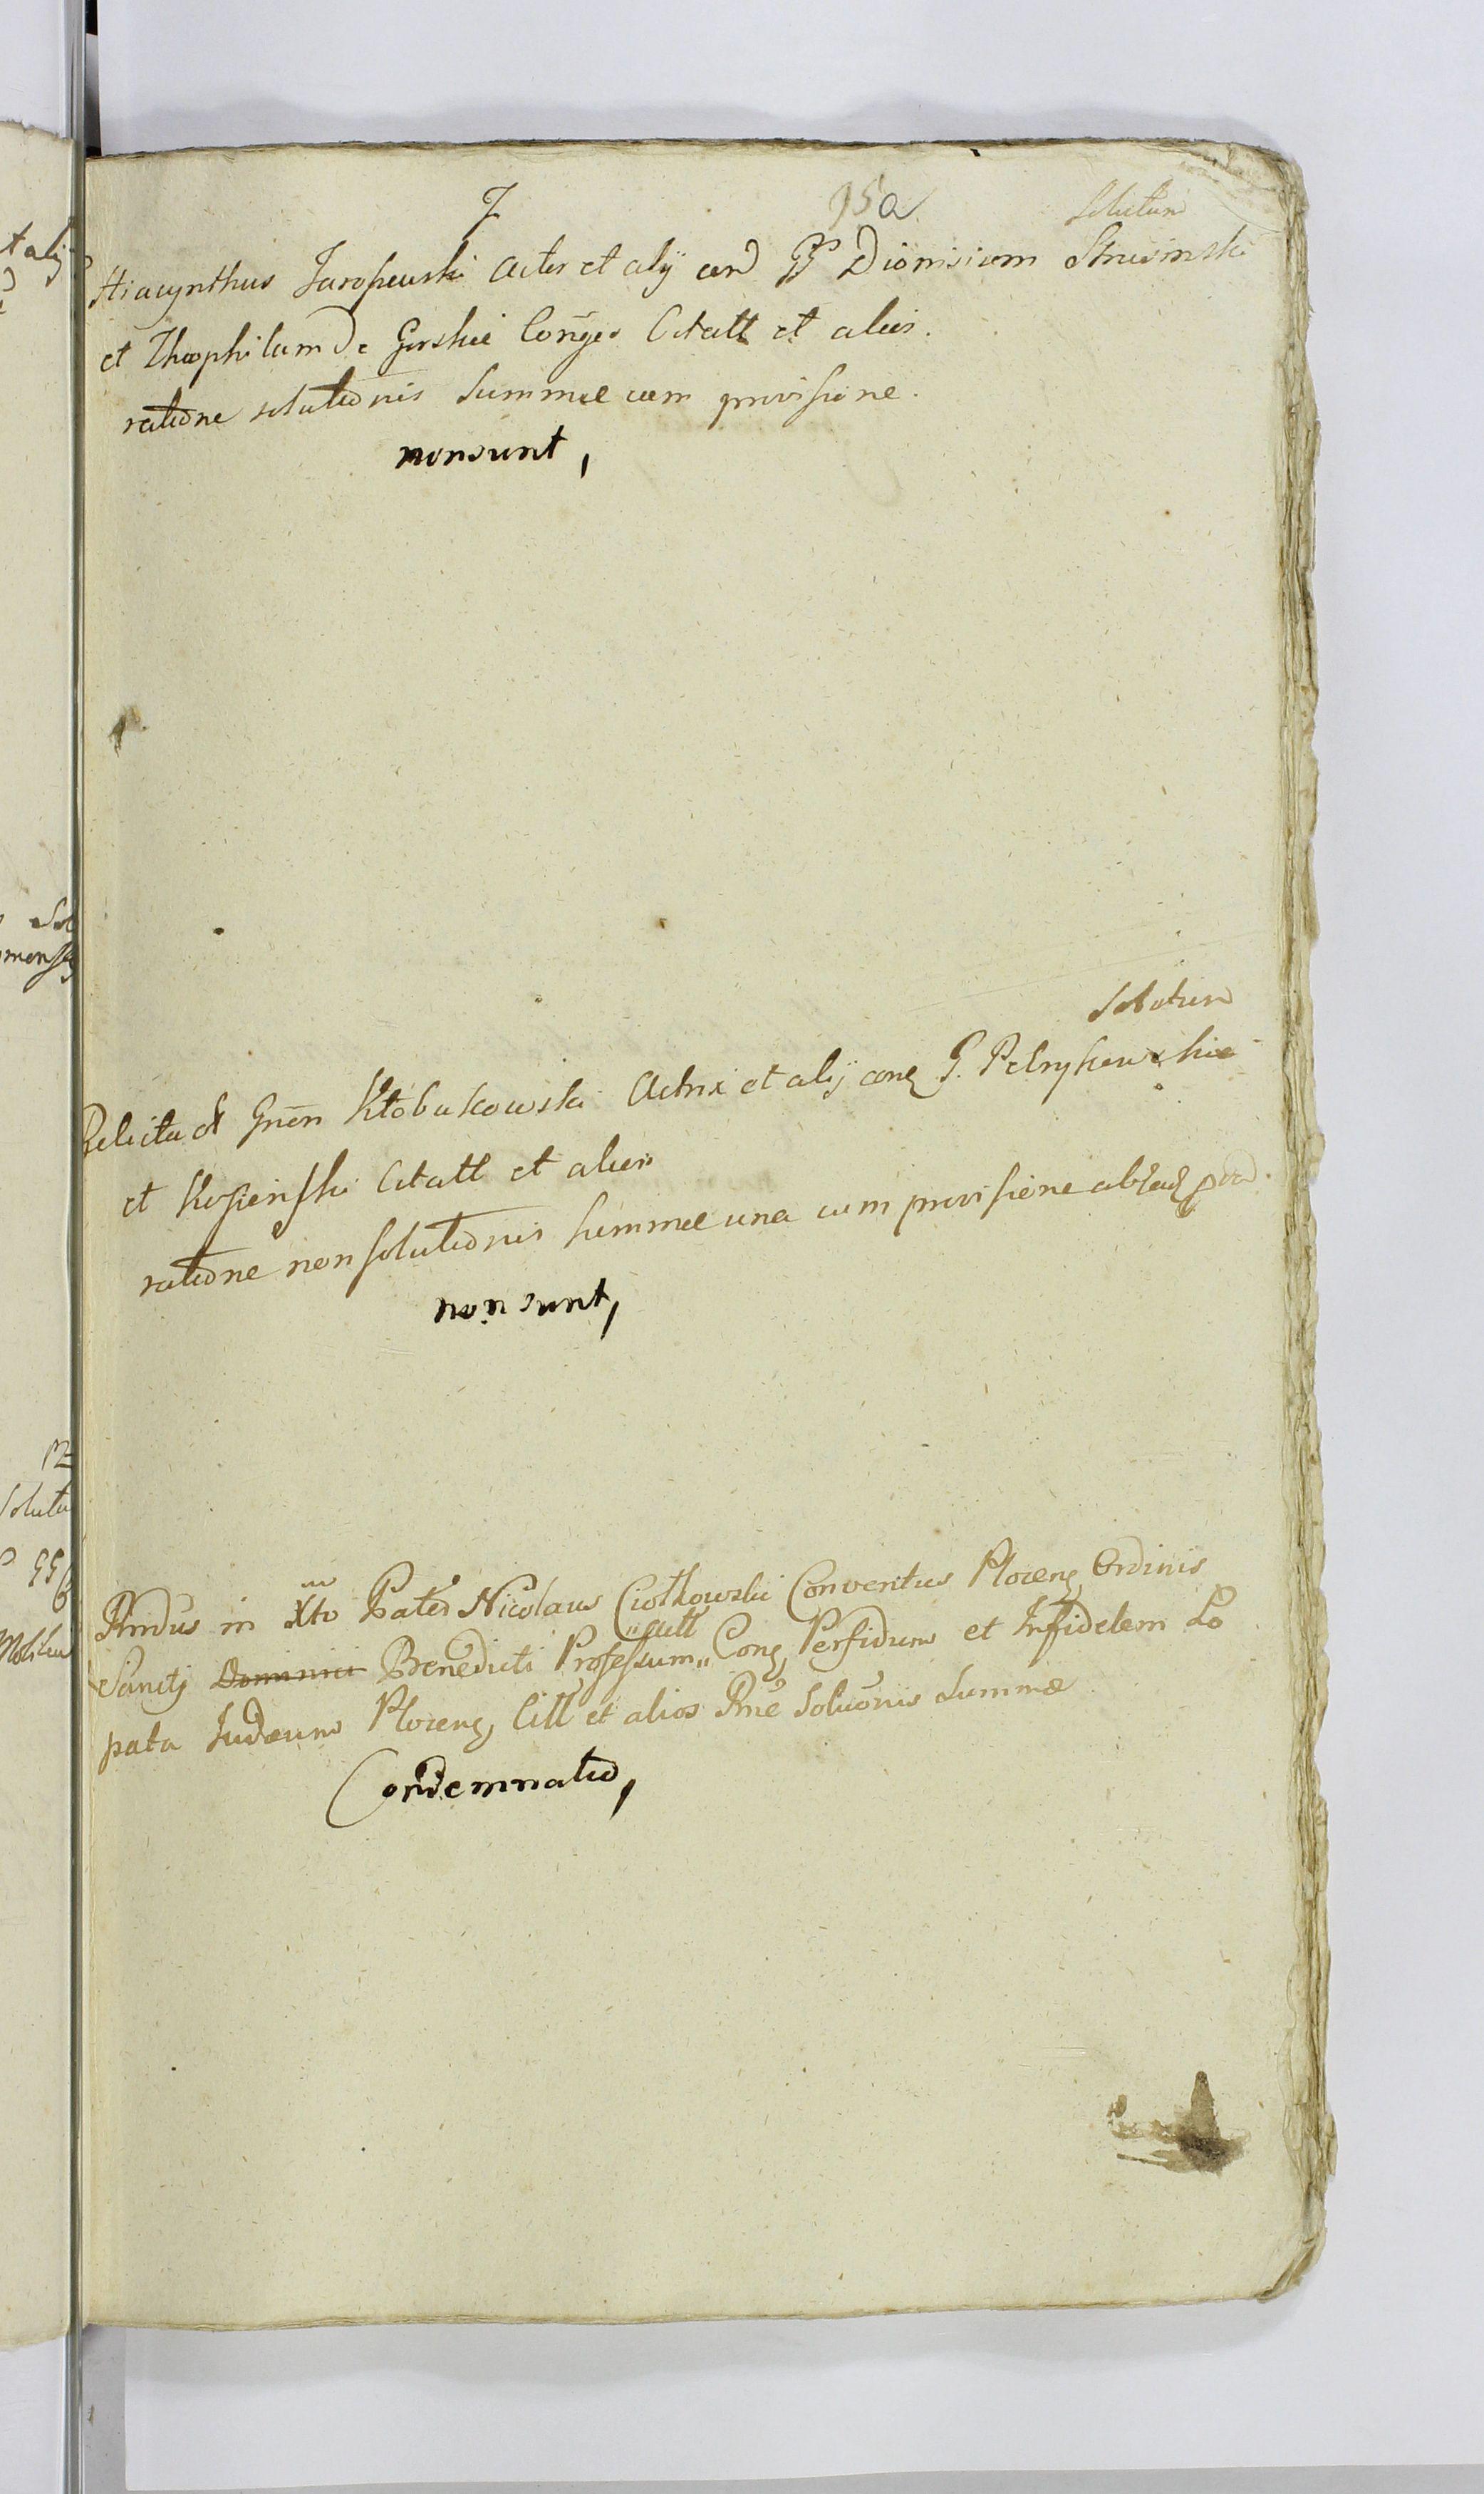 7
95a
Solutum
Hiacynthus Jaroszewski Actor et alij con GG Dionisium
et Theophilam de Gorskie Conjges Citatt et alios.
ratione solutionis summae cum provisione.
non sunt,
Solutum
Relicta ol Gnen Kłobukowski Actrix et alij conq G.
et Kosinski Citatt et alios
ratione non solutionis summae una cum provisione
non sunt,
Rndus in Xto Pater Nicolaus Ciołkowski Conventus Plocenq Ordinis
Sancti Dominici Benedicti Professum Conq Perfidum et Infidelem Lo
pata Judaeum Plocenq Citt et alios Rne Soluonis Summae
Condemnatio,